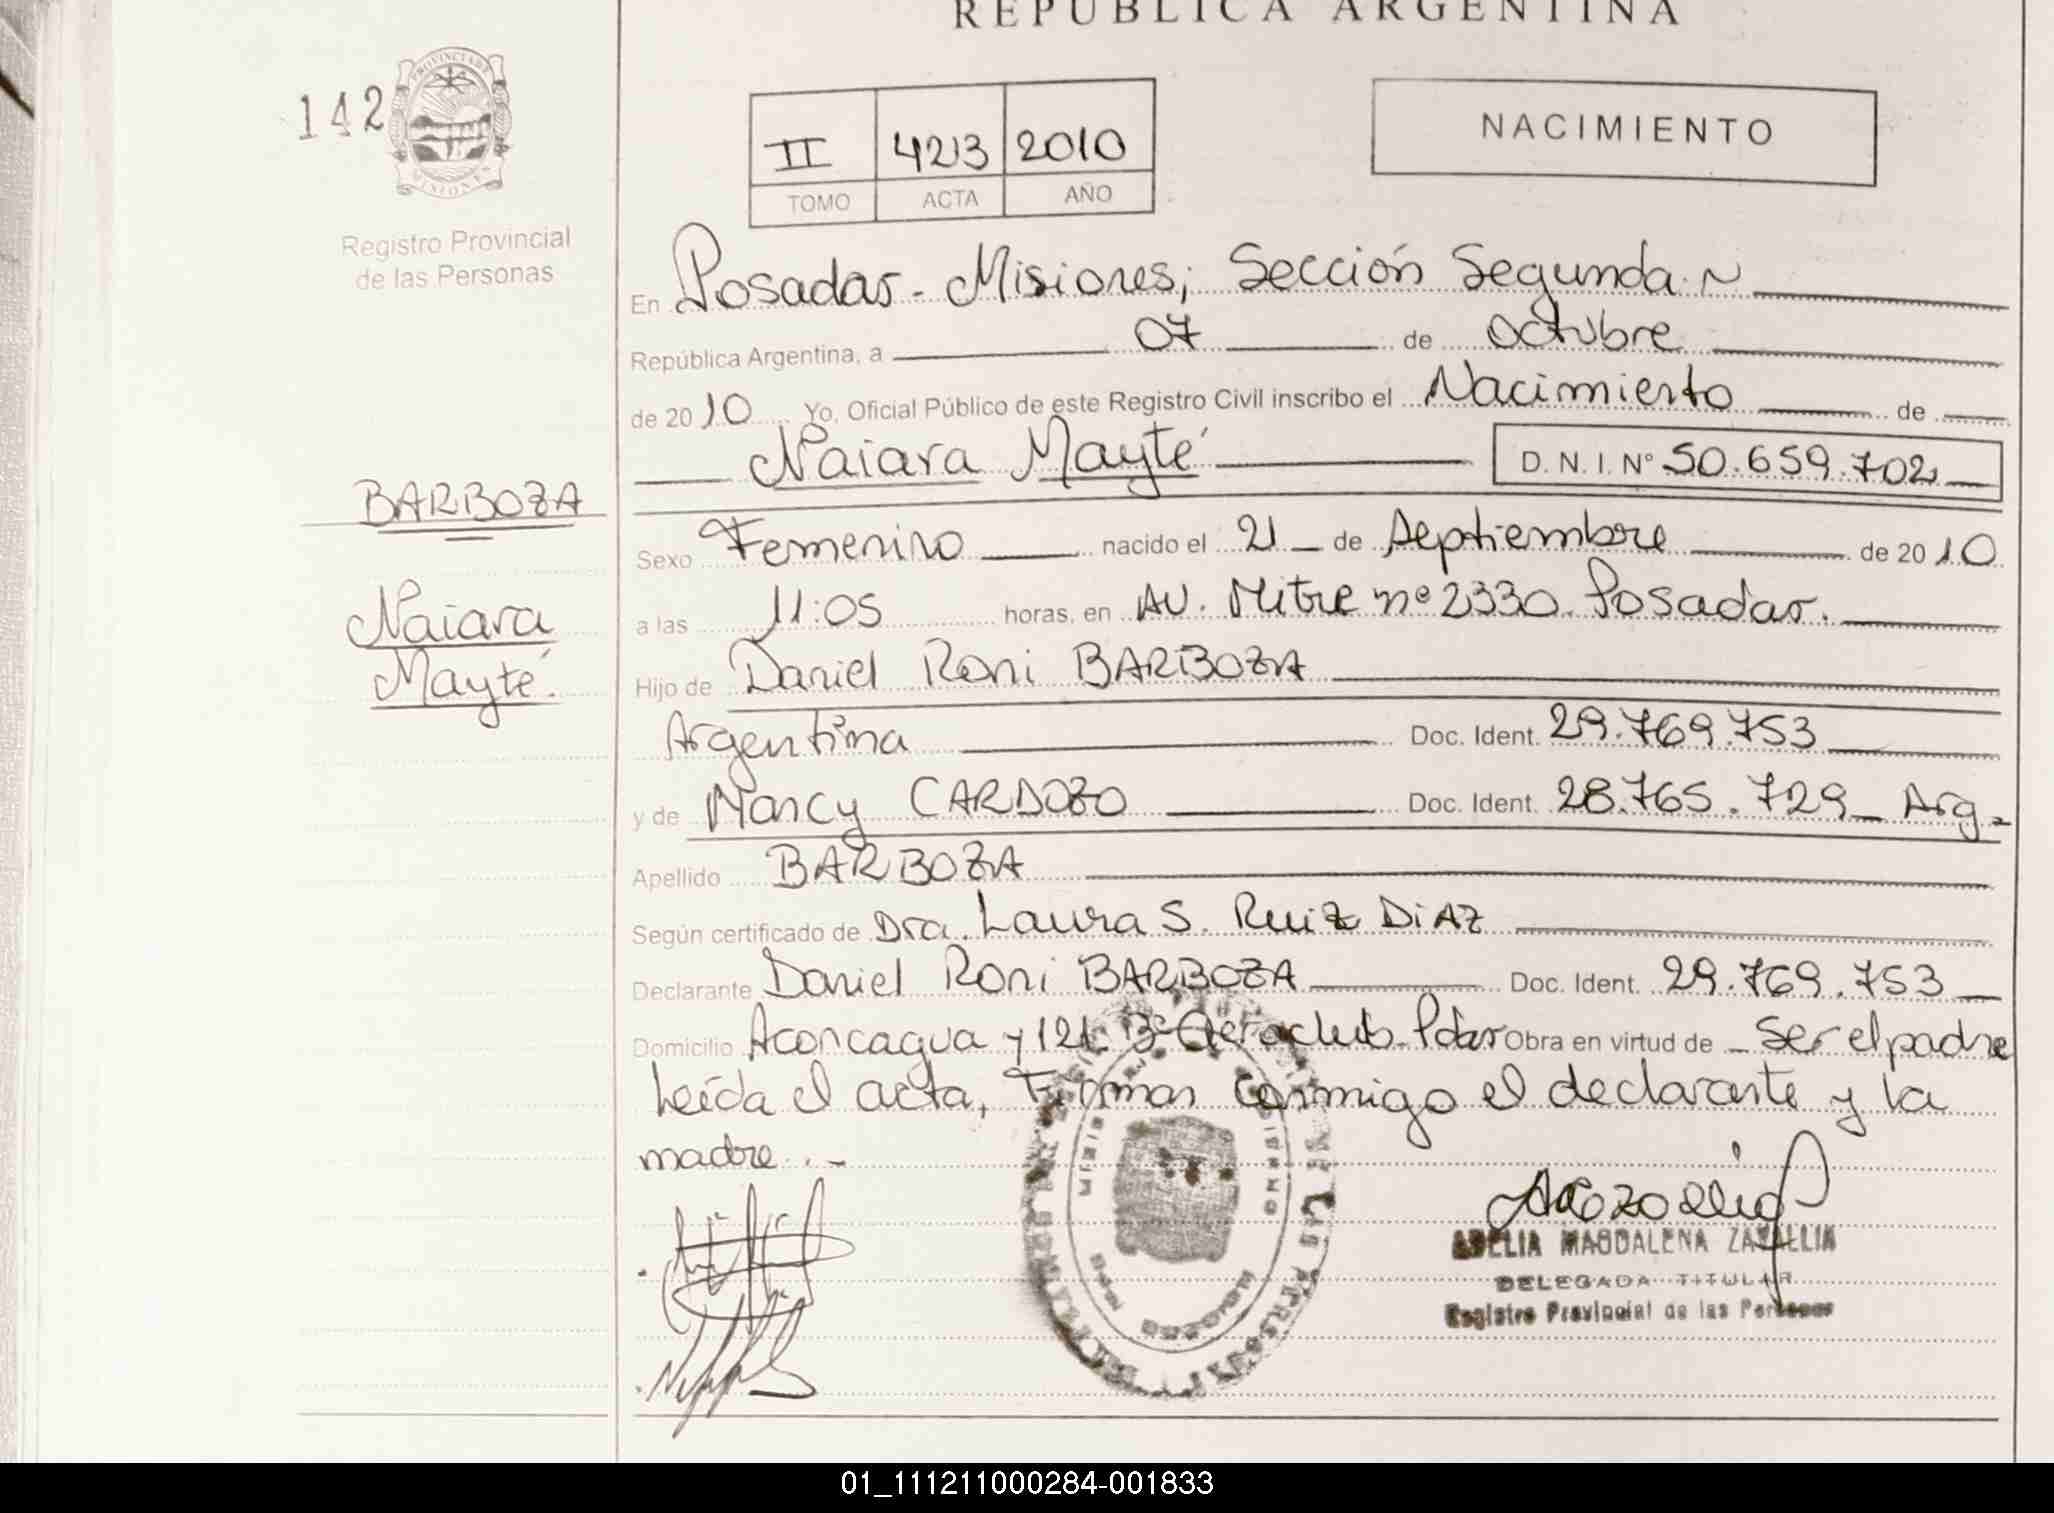 REPÚBLICA ARGENTINA
142
PROVINCIA DE
MISIONES
Registro Provincial
de las Personas
II 423 2010
TOMO ACTA AÑO
NACIMIENTO
En Posadas - Misiones; Sección Segunda
República Argentina, a 07 de Octubre
de 2010 Yo, Oficial Público de este Registro Civil inscribo el Nacimiento de
Naiara Mayté D.N.I. Nº 50.659.702
BARBOZA
Naiara
Mayté.
Sexo Femenino nacido el 21 de Septiembre de 2010
a las 11:05 horas, en AV. Mitre nº 2330. Posadas.
Hijo de Daniel Roni BARBOZA
Argentina Doc. Ident. 29.769.753
y de Nancy CARDOZO Doc. Ident. 28.765.729 Arg.
Apellido BARBOZA
Según certificado de Dra. Laura S. Ruiz DiAZ
Declarante Daniel Roni BARBOZA Doc. Ident. 29.769.753
Domicilio Aconcagua y 121. Bº Aeroclub. Pdas Obra en virtud de Ser el padre
Leída el acta, Firman conmigo el declarante y la
madre. -
ADELIA MAGDALENA ZAZALLIA
DELEGADA TITULAR
Registro Provincial de las Personas
01_111211000284-001833